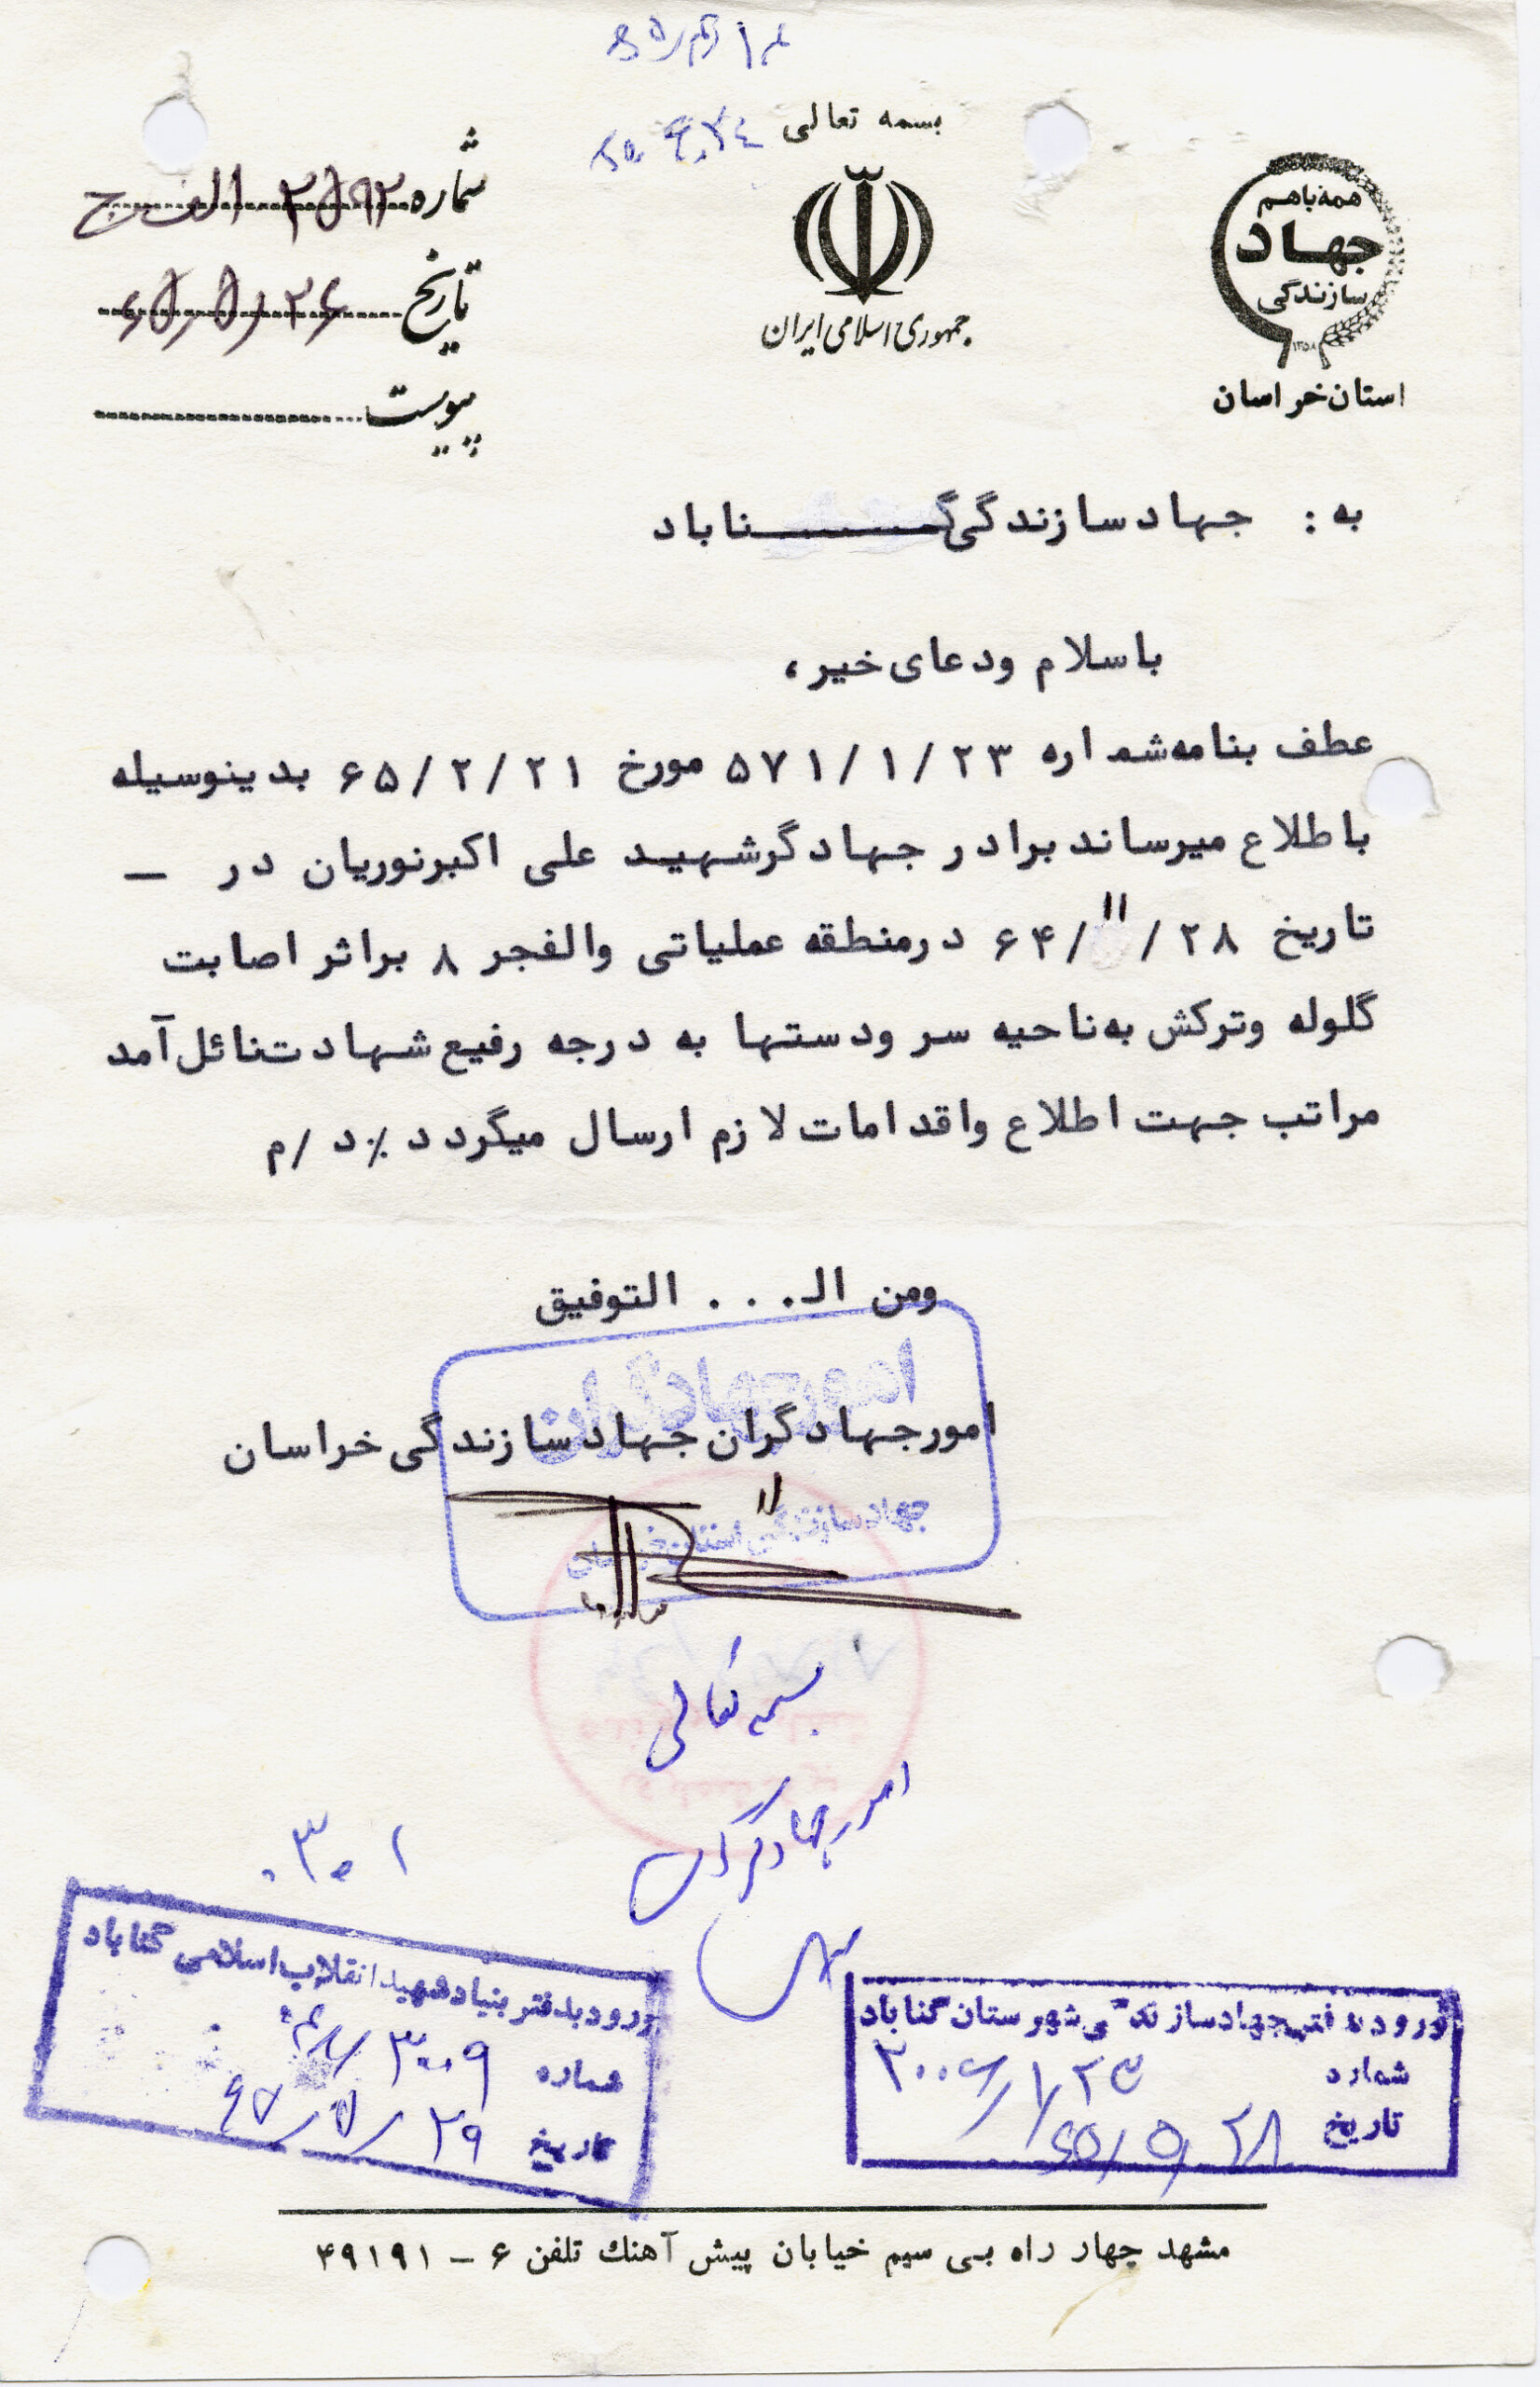 بسمه تعالی
همه باهم
جهاد
سازندگی
۱۳۵۸
استان خراسان
جمهوری اسلامی ایران
شماره ۲۵۹۲ الف ج
تاریخ ۶۵/۵/۲۶
پیوست
به : جهاد سازندگی گناباد
باسلام ودعای خیر ،
عطف بنامه شماره ۵۷۱/۱/۲۳ مورخ ۶۵/۲/۲۱ بدینوسیله
باطلاع میرساند برادر جهادگرشهید علی اکبرنوریان در –
تاریخ ۶۴/۱۱/۲۸ درمنطقه عملیاتی والفجر ۸ براثر اصابت
گلوله وترکش به ناحیه سر ودستها به درجه رفیع شهادت نائل آمد
مراتب جهت اطلاع واقدامات لازم ارسال میگردد ٪ د /م
ومن الـ . . . التوفیق
امورجهادگران
امورجهادگران جهاد سازندگی خراسان
جهاد سازندگی استان خراسان
بسمه تعالی
امور جهادگران
۰۳۰۱
ورود بدفتر جهاد سازندگی شهرستان گناباد
شماره
تاریخ ۶۵/۵/۲۸
ورود بدفتر بنیاد شهید انقلاب اسلامی گناباد
شماره ۳۰۰۹
تاریخ ۶۵/۵/۲۹
مشهد چهار راه بی سیم خیابان پیش آهنك تلفن ۶ – ۴۹۱۹۱